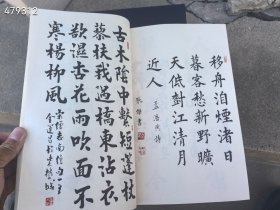 479312
移舟泊烟渚日
暮客愁新野曠
天低樹江清月
近人
孟浩然詩
古木陰中繫短蓬杖
藜扶我過橋東沾衣
欲濕杏花雨吹面不
寒楊柳風